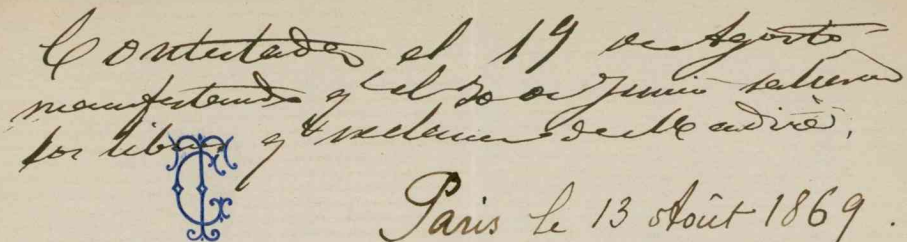 Contestada el 19 de Agosto
manifestando q.e el 30 de Junio salieron
los libros q.e reclama de Madrid.
Paris le 13 Août 1869.